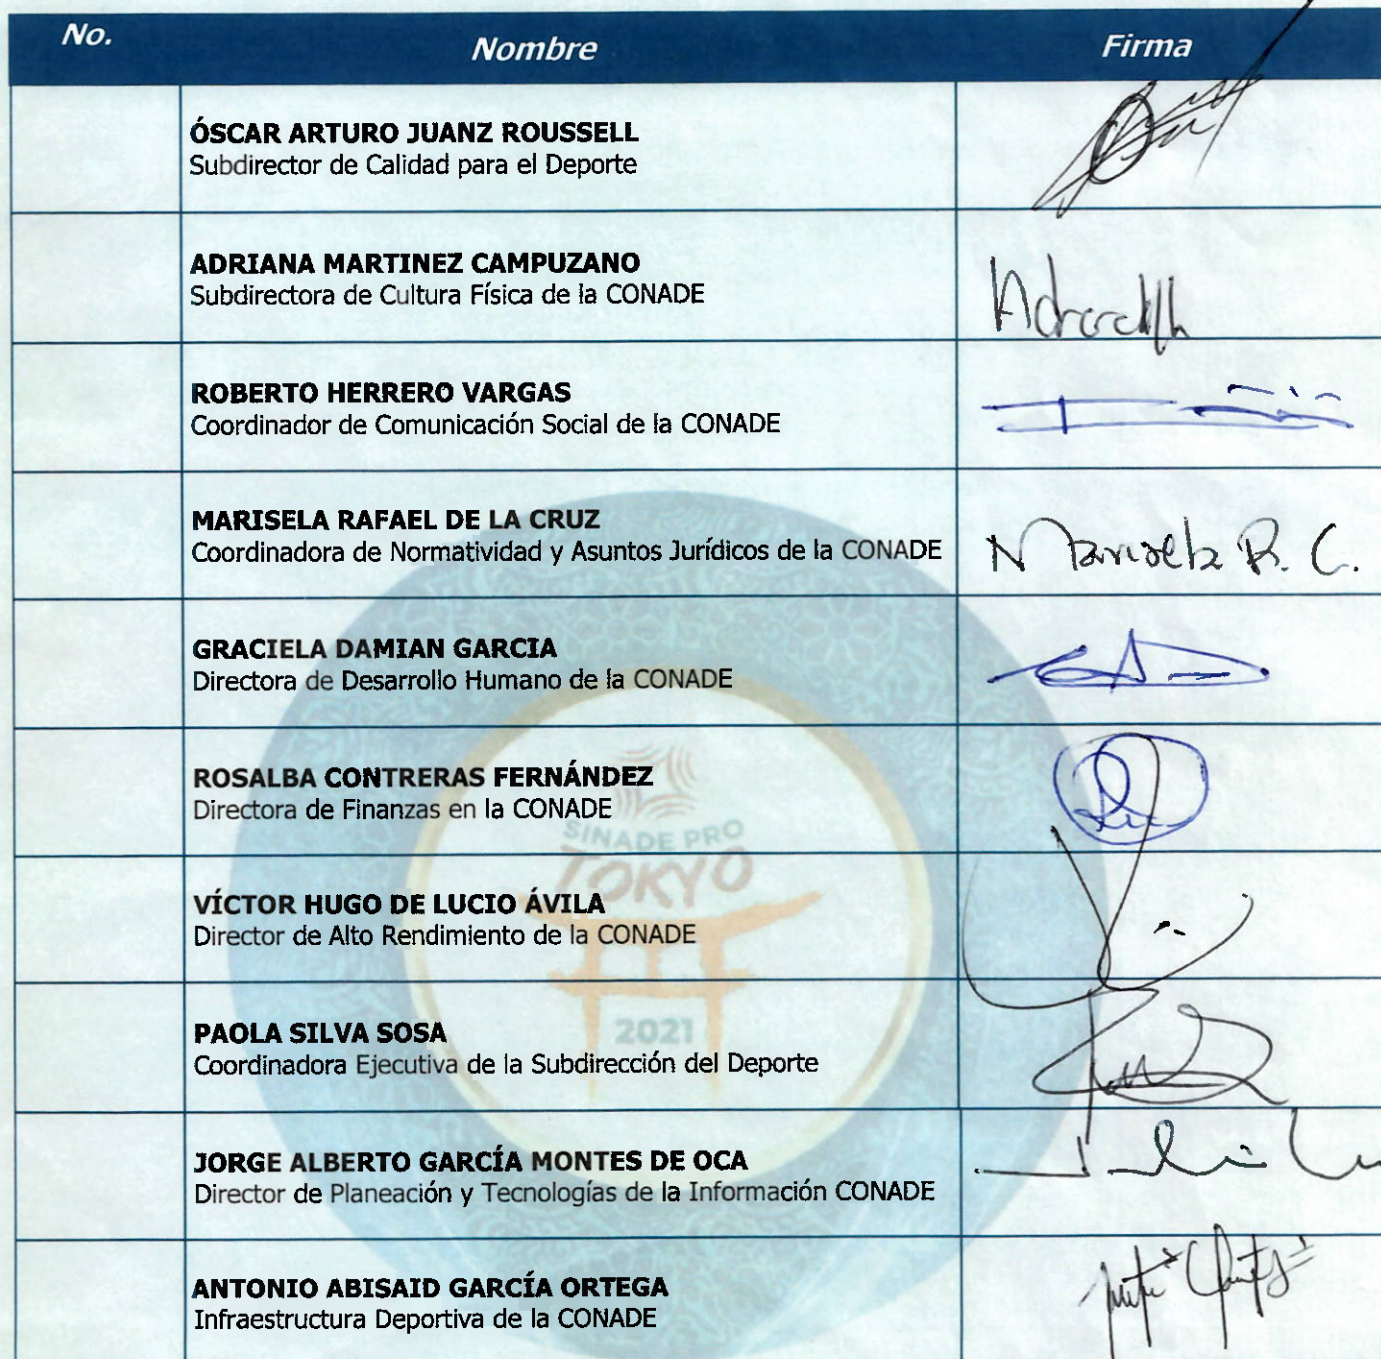 No. Nombre Firma
ÓSCAR ARTURO JUANZ ROUSSELL
Subdirector de Calidad para el Deporte
ADRIANA MARTINEZ CAMPUZANO
Subdirectora de Cultura Física de la CONADE
ROBERTO HERRERO VARGAS
Coordinador de Comunicación Social de la CONADE
MARISELA RAFAEL DE LA CRUZ
Coordinadora de Normatividad y Asuntos Jurídicos de la CONADE
Marisela R. C.
GRACIELA DAMIAN GARCIA
Directora de Desarrollo Humano de la CONADE
ROSALBA CONTRERAS FERNÁNDEZ
Directora de Finanzas en la CONADE
SINADE PRO
TOKYO
VÍCTOR HUGO DE LUCIO ÁVILA
Director de Alto Rendimiento de la CONADE
2021
PAOLA SILVA SOSA
Coordinadora Ejecutiva de la Subdirección del Deporte
JORGE ALBERTO GARCÍA MONTES DE OCA
Director de Planeación y Tecnologías de la Información CONADE
ANTONIO ABISAID GARCÍA ORTEGA
Infraestructura Deportiva de la CONADE